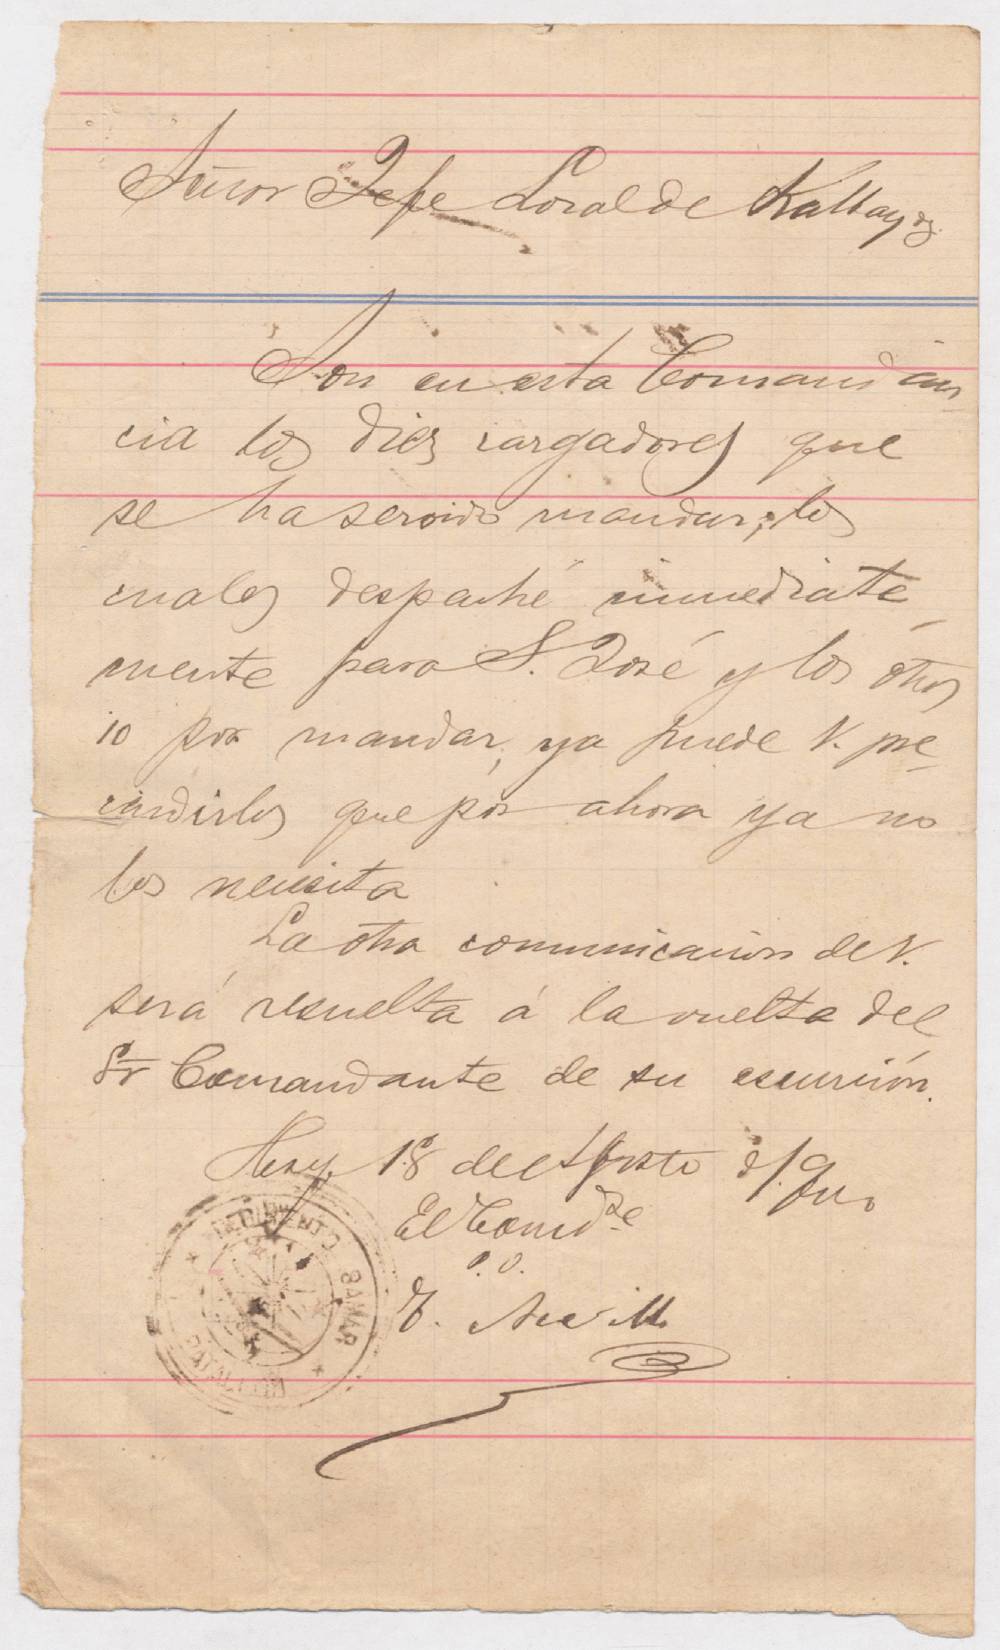 Señor Jefe Local de Kalbayog.
Son en esta Comandan-
cia los diez cargadores que
se ha servido mandar; los
cuales despaché inmediata-
mente para S. José y los otros
10 por mandar, ya puede V. pre-
cindirlos que por ahora ya no
los necesita
La otra comunicacion de V.
será resuelta á la vuelta del
Sr Comandante de su escursión.
18 de Agosto d/
El Comdte
P. O.
REGIMIENTO SAMAR
BATALLON